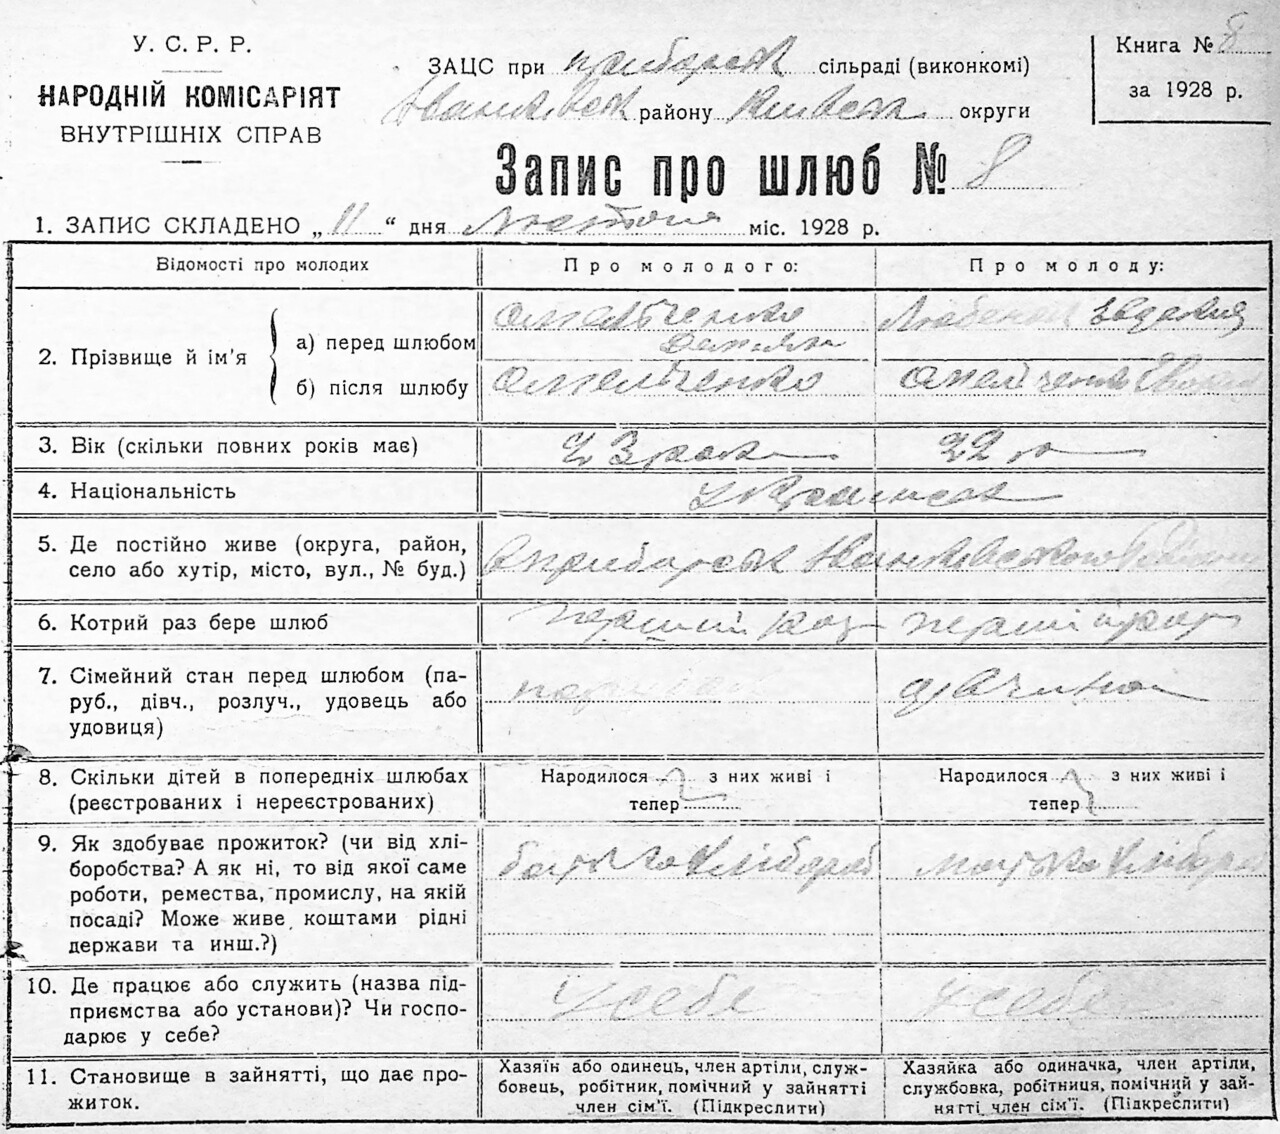 У. С. Р. Р.
НАРОДНІЙ КОМІСАРІЯТ
ВНУТРІШНІХ СПРАВ
ЗАЦС при сільраді (виконкомі)
району округи
Книга № 8
за 1928 р.
Запис про шлюб № 8
1. ЗАПИС СКЛАДЕНО „ 11 “ дня Лютого міс. 1928 р.
Відомості про молодих
Про молодого:
Про молоду:
2. Прізвище й ім’я
а) перед шлюбом
Омельченко
Демьян
б) після шлюбу
Омельченко
Омельченко
3. Вік (скільки повних років має)
23
22
4. Національність
5. Де постійно живе (округа, район,
село або хутір, місто, вул., № буд.)
6. Котрий раз бере шлюб
перший раз
перший раз
7. Сімейний стан перед шлюбом (па-
руб., дівч., розлуч., удовець або
удовиця)
8. Скільки дітей в попередніх шлюбах
(реєстрованих і нереєстрованих)
Народилося з них живі і
тепер
Народилося з них живі і
тепер
9. Як здобуває прожиток? (чи від хлі-
боробства? А як ні, то від якої саме
роботи, ремества, промислу, на якій
посаді? Може живе коштами рідні
держави та инш.?)
10. Де працює або служить (назва під-
приємства або установи)? Чи госпо-
дарює у себе?
У себе
У себе
11. Становище в зайнятті, що дає про-
житок.
Хазяїн або одинець, член артіли, служ-
бовець, робітник, помічний у зайнятті
член сім’ї. (Підкреслити)
Хазяйка або одиначка, член артіли,
службовка, робітниця, помічний у зай-
нятті член сім’ї. (Підкреслити)